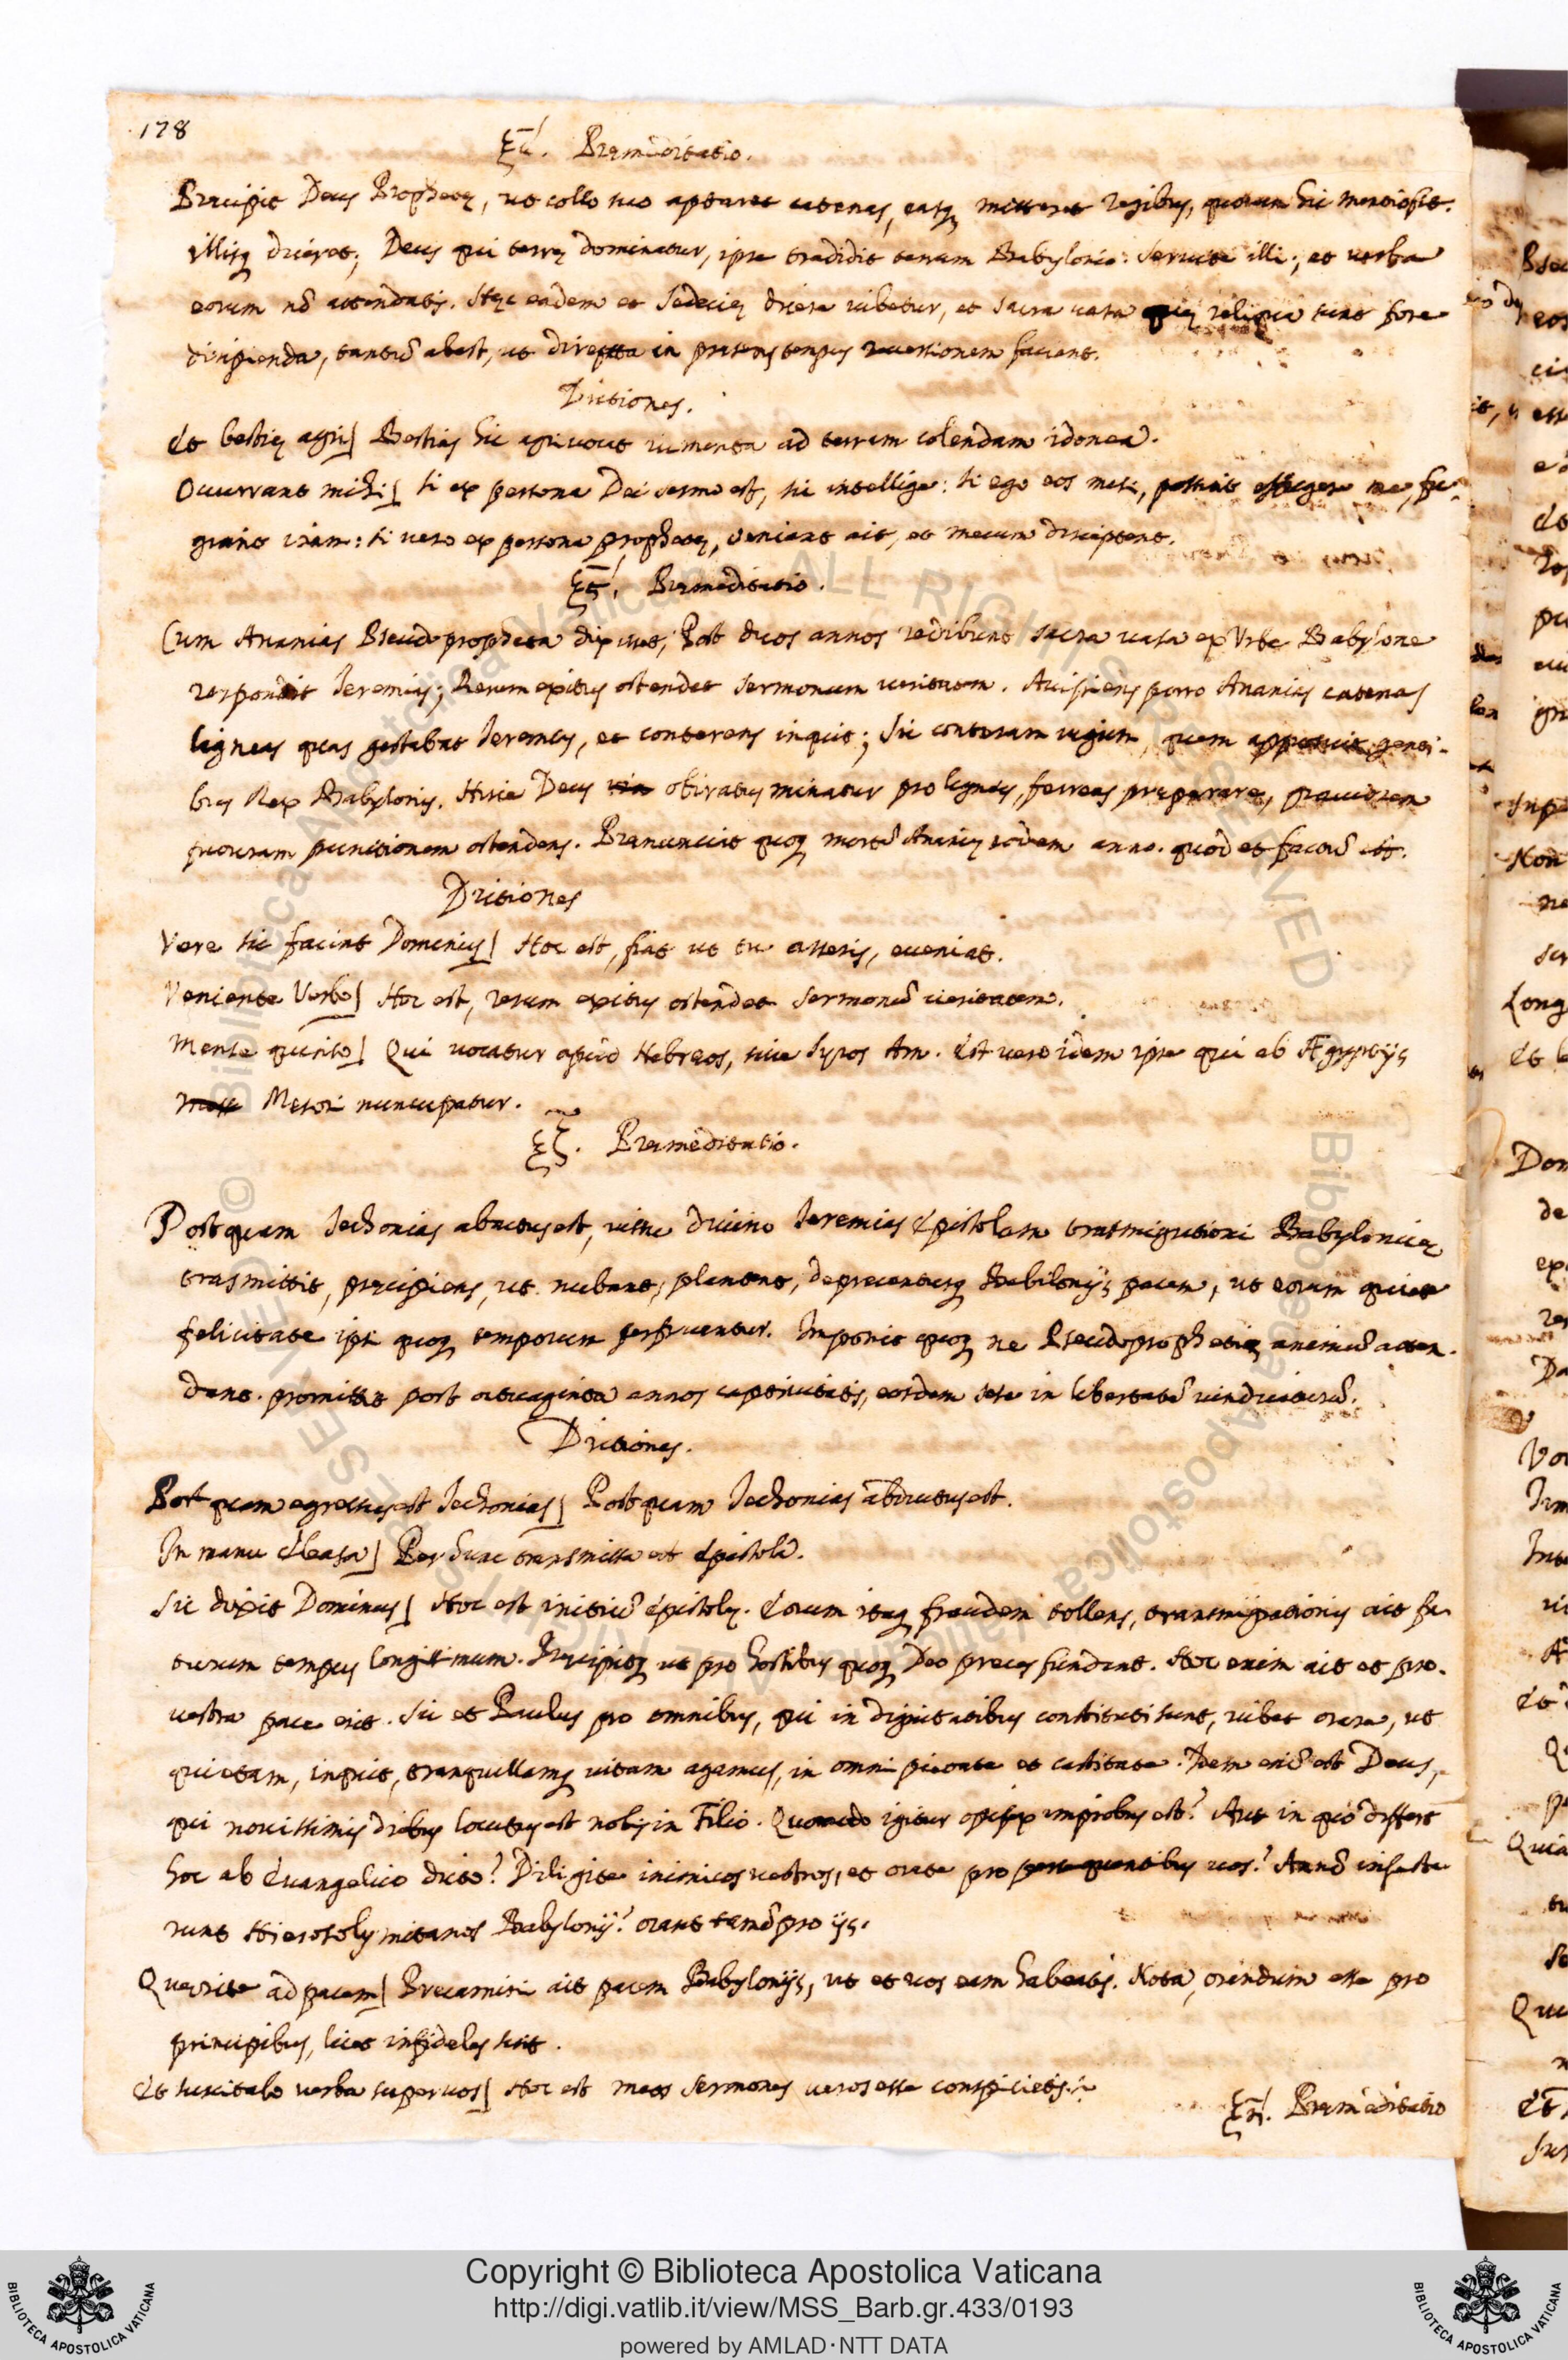 178
ξδ'. Præmeditatio.
Præcipit Deus Prophetę, ut collo suo aptaret catenas, easq; mitteret regibus, quorum hic mentio fit.
illisq; diceret; Deus qui terrę dominatur, ipse tradidit terram Babylonio: servite illi; et verba
eorum nō attendatis. Hęc eadem et Sedecię dicere iubetur, et sacra vasa quę reliqua sunt fore
diripienda, tantū abest, ut direpta in præsens tempus reversionem faciant.
Dictiones.
Et bestię agri] Bestias hic agri vocat iumenta ad terram colendam idonea.
Occurrant mihi] si ex persona Dei sermo est, sic intellige: si ego eos misi, effugere me, fu-
giant iram: si vero ex persona prophetę, veniant ait, et mecum disceptent.
ξε'. Præmeditatio.
Cum Ananias Pseudopropheta dixisset, Post duos annos redibunt sacra vasa ex Urbe Babylone
respondit Jeremias; Rerum exitus ostendet sermonum veritatem. Accipiens porro Ananias catenas
ligneas quas gestabat Jeremias, et conterens inquit; Sic conteram iugum, quem apposuit genti-
bus Rex Babylonis. Hisce Deus obiratus minatur pro ligneis, ferreas præparare, graviorem
futuram punitionem ostendens. Prænunciat quoq; mortē Ananię eodem anno. quod et factū est.
Dictiones
Vere sic faciat Dominus] Hoc est, fiat ut tu asseris, eveniat.
Veniente Verbo] Hoc est, rerum exitus ostendet sermonū veritatem.
Mense quinto] Qui vocatur apud Hebreos, sive Syros Am. Est vero idem ipse qui ab Ægyptijs
Mesori nuncupatur.
ξζ. Præmeditatio.
Postquam Jechonias abductus est, iussu divino Jeremias Epistolam trasmigrationi Babylonicę
trasmittit, pręcipiens, ut nubant, plantent, deprecenturq; Babilonijs pacem, ut eorum quiete
felicitate ipsi quoq; temporum perfruentur. Imponit quoq; ne Pseudoprophetis animū atten-
dant. promittit post septuaginta annos captivitatis, eosdem sese in libertatē vindicaturū.
Dictiones.
Postquam egressus est Jechonias] Postquam Jechonias abductus est.
In manu Eleasa] Per hunc transmissa est Epistola.
Sic dixit Dominus] Hoc est initiū Epistolę. Eorum itaq; fraudem tollens, transmigrationis ait fu-
turum tempus longissimum. Pręcipitq; ut pro hostibus quoq; Deo preces fundant. Hoc enim ait et pro
vestra pace erit. Sic et Paulus pro omnibus, qui in dignitatibus constituti sunt, iubet orare, ut
quietam, inquit, tranquillamq; vitam agamus, in omni pietate et castitate. Idem enī est Deus,
qui novissimis diebus locutus est nobis in Filio. Quomodo igitur opifex improbus est? Aut in quo differt
hoc ab Evangelico dicto? Diligite inimicos vestros, et orate pro persequentibus vos? Annō infesta
runt Hierosolymitanos Babylonij? orant tamē pro ijs.
Quærite ad pacem] Precamini ait pacem Babylonijs, ut et vos eam habeatis. Nota, orandum esse pro
principibus, licet infideles sint.
Et suscitabo verba super vos] Hoc est meos sermones veros esse conspicietis.
ξη'. Præmeditatio
Copyright © Biblioteca Apostolica Vaticana
http://digi.vatlib.it/view/MSS_Barb.gr.433/0193
powered by AMLAD·NTT DATA